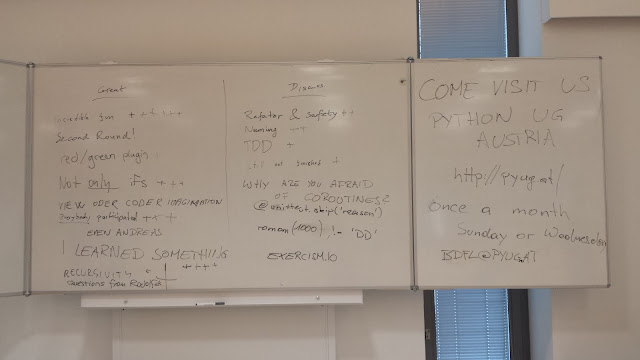 Great
Incredible fun + + + + +
Second Round!
red/green plugin
Not only ifs + + +
VIEW ODER CODER IMAGINATION
Everybody participated + + +
EVEN ANDREAS
I LEARNED SOMETHING
+ + + +
RECURSIVITY
questions from
Discuss
Refactor & safety ++
Naming ++
TDD +
not finished +
WHY ARE YOU AFRAID
OF COROUTINES?
@unittest.skip('reason')
roman(1000) != 'DD'
EXERCISM.IO
COME VISIT US
PYTHON UG
AUSTRIA
http://pyug.at/
Once a month
Sunday or Wednesday
BDFL@PYUG.AT